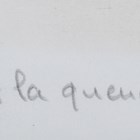 : la queu